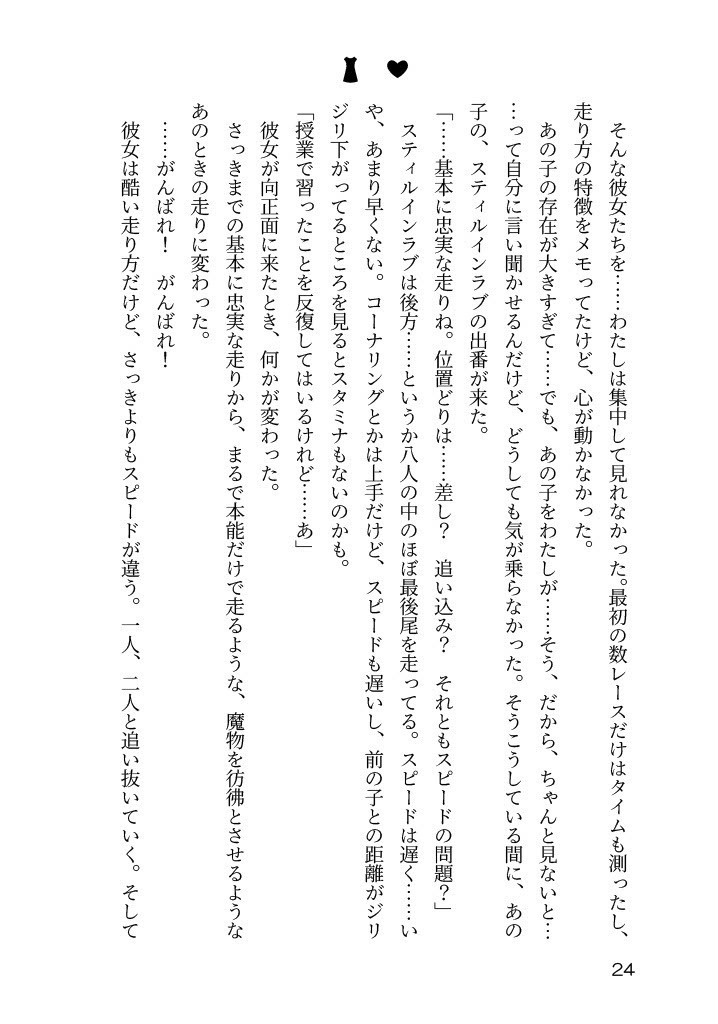 そんな彼女たちを……わたしは集中して見れなかった。最初の数レースだけはタイムも測ったし、
走り方の特徴をメモってたけど、心が動かなかった。
　あの子の存在が大きすぎて……でも、あの子をわたしが……そう、だから、ちゃんと見ないと…
…って自分に言い聞かせるんだけど、どうしても気が乗らなかった。そうこうしている間に、あの
子の、スティルインラブの出番が来た。
「……基本に忠実な走りね。位置どりは……差し？　追い込み？　それともスピードの問題？」
　スティルインラブは後方……というか八人の中のほぼ最後尾を走ってる。スピードは遅く……い
や、あまり早くない。コーナリングとかは上手だけど、スピードも遅いし、前の子との距離がジリ
ジリ下がってるところを見るとスタミナもないのかも。
「授業で習ったことを反復してはいるけれど……あ」
　彼女が向正面に来たとき、何かが変わった。
　さっきまでの基本に忠実な走りから、まるで本能だけで走るような、魔物を彷彿とさせるような
あのときの走りに変わった。
　……がんばれ！　がんばれ！
　彼女は酷い走り方だけど、さっきよりもスピードが違う。一人、二人と追い抜いていく。そして
24